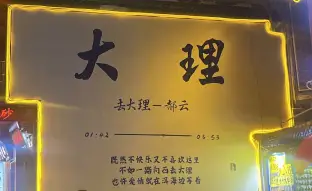 大理
去大理—郝云
01:42 05:53
既然不快乐又不喜欢这里
不如一路向西去大理
也许爱情就在洱海边等着